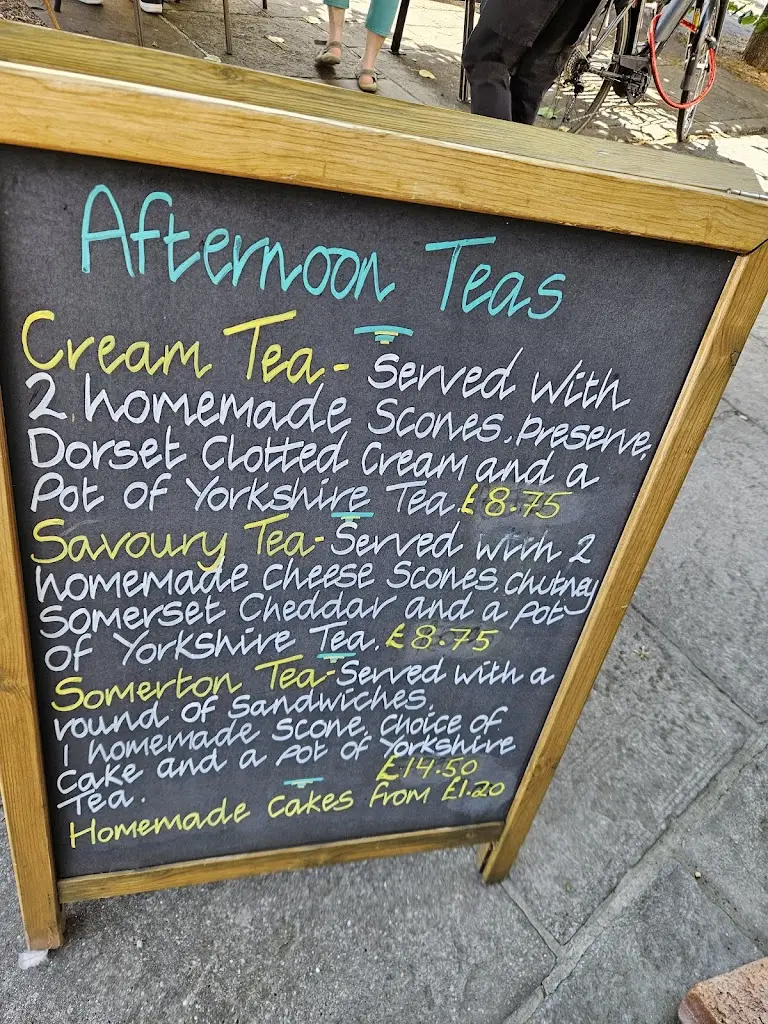 Afternoon Teas
Cream Tea - Served with
2 homemade Scones, preserve,
Dorset Clotted Cream and a
Pot of Yorkshire Tea. £8.75
Savoury Tea - Served with 2
homemade cheese Scones, chutney
Somerset Cheddar and a pot
of Yorkshire Tea. £8.75
Somerton Tea - Served with a
round of Sandwiches,
1 homemade Scone, Choice of
Cake and a Pot of Yorkshire
Tea. £14.50
Homemade Cakes from £1.20